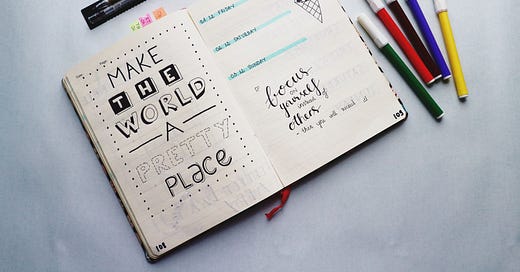 MAKE
THE
WORLD
A
PRETTY
PLACE
108
02.12 FRIDAY
02.12 SATURDAY
02.12 SUNDAY
focus
on
yourself
instead of
others
- then you will make it
109